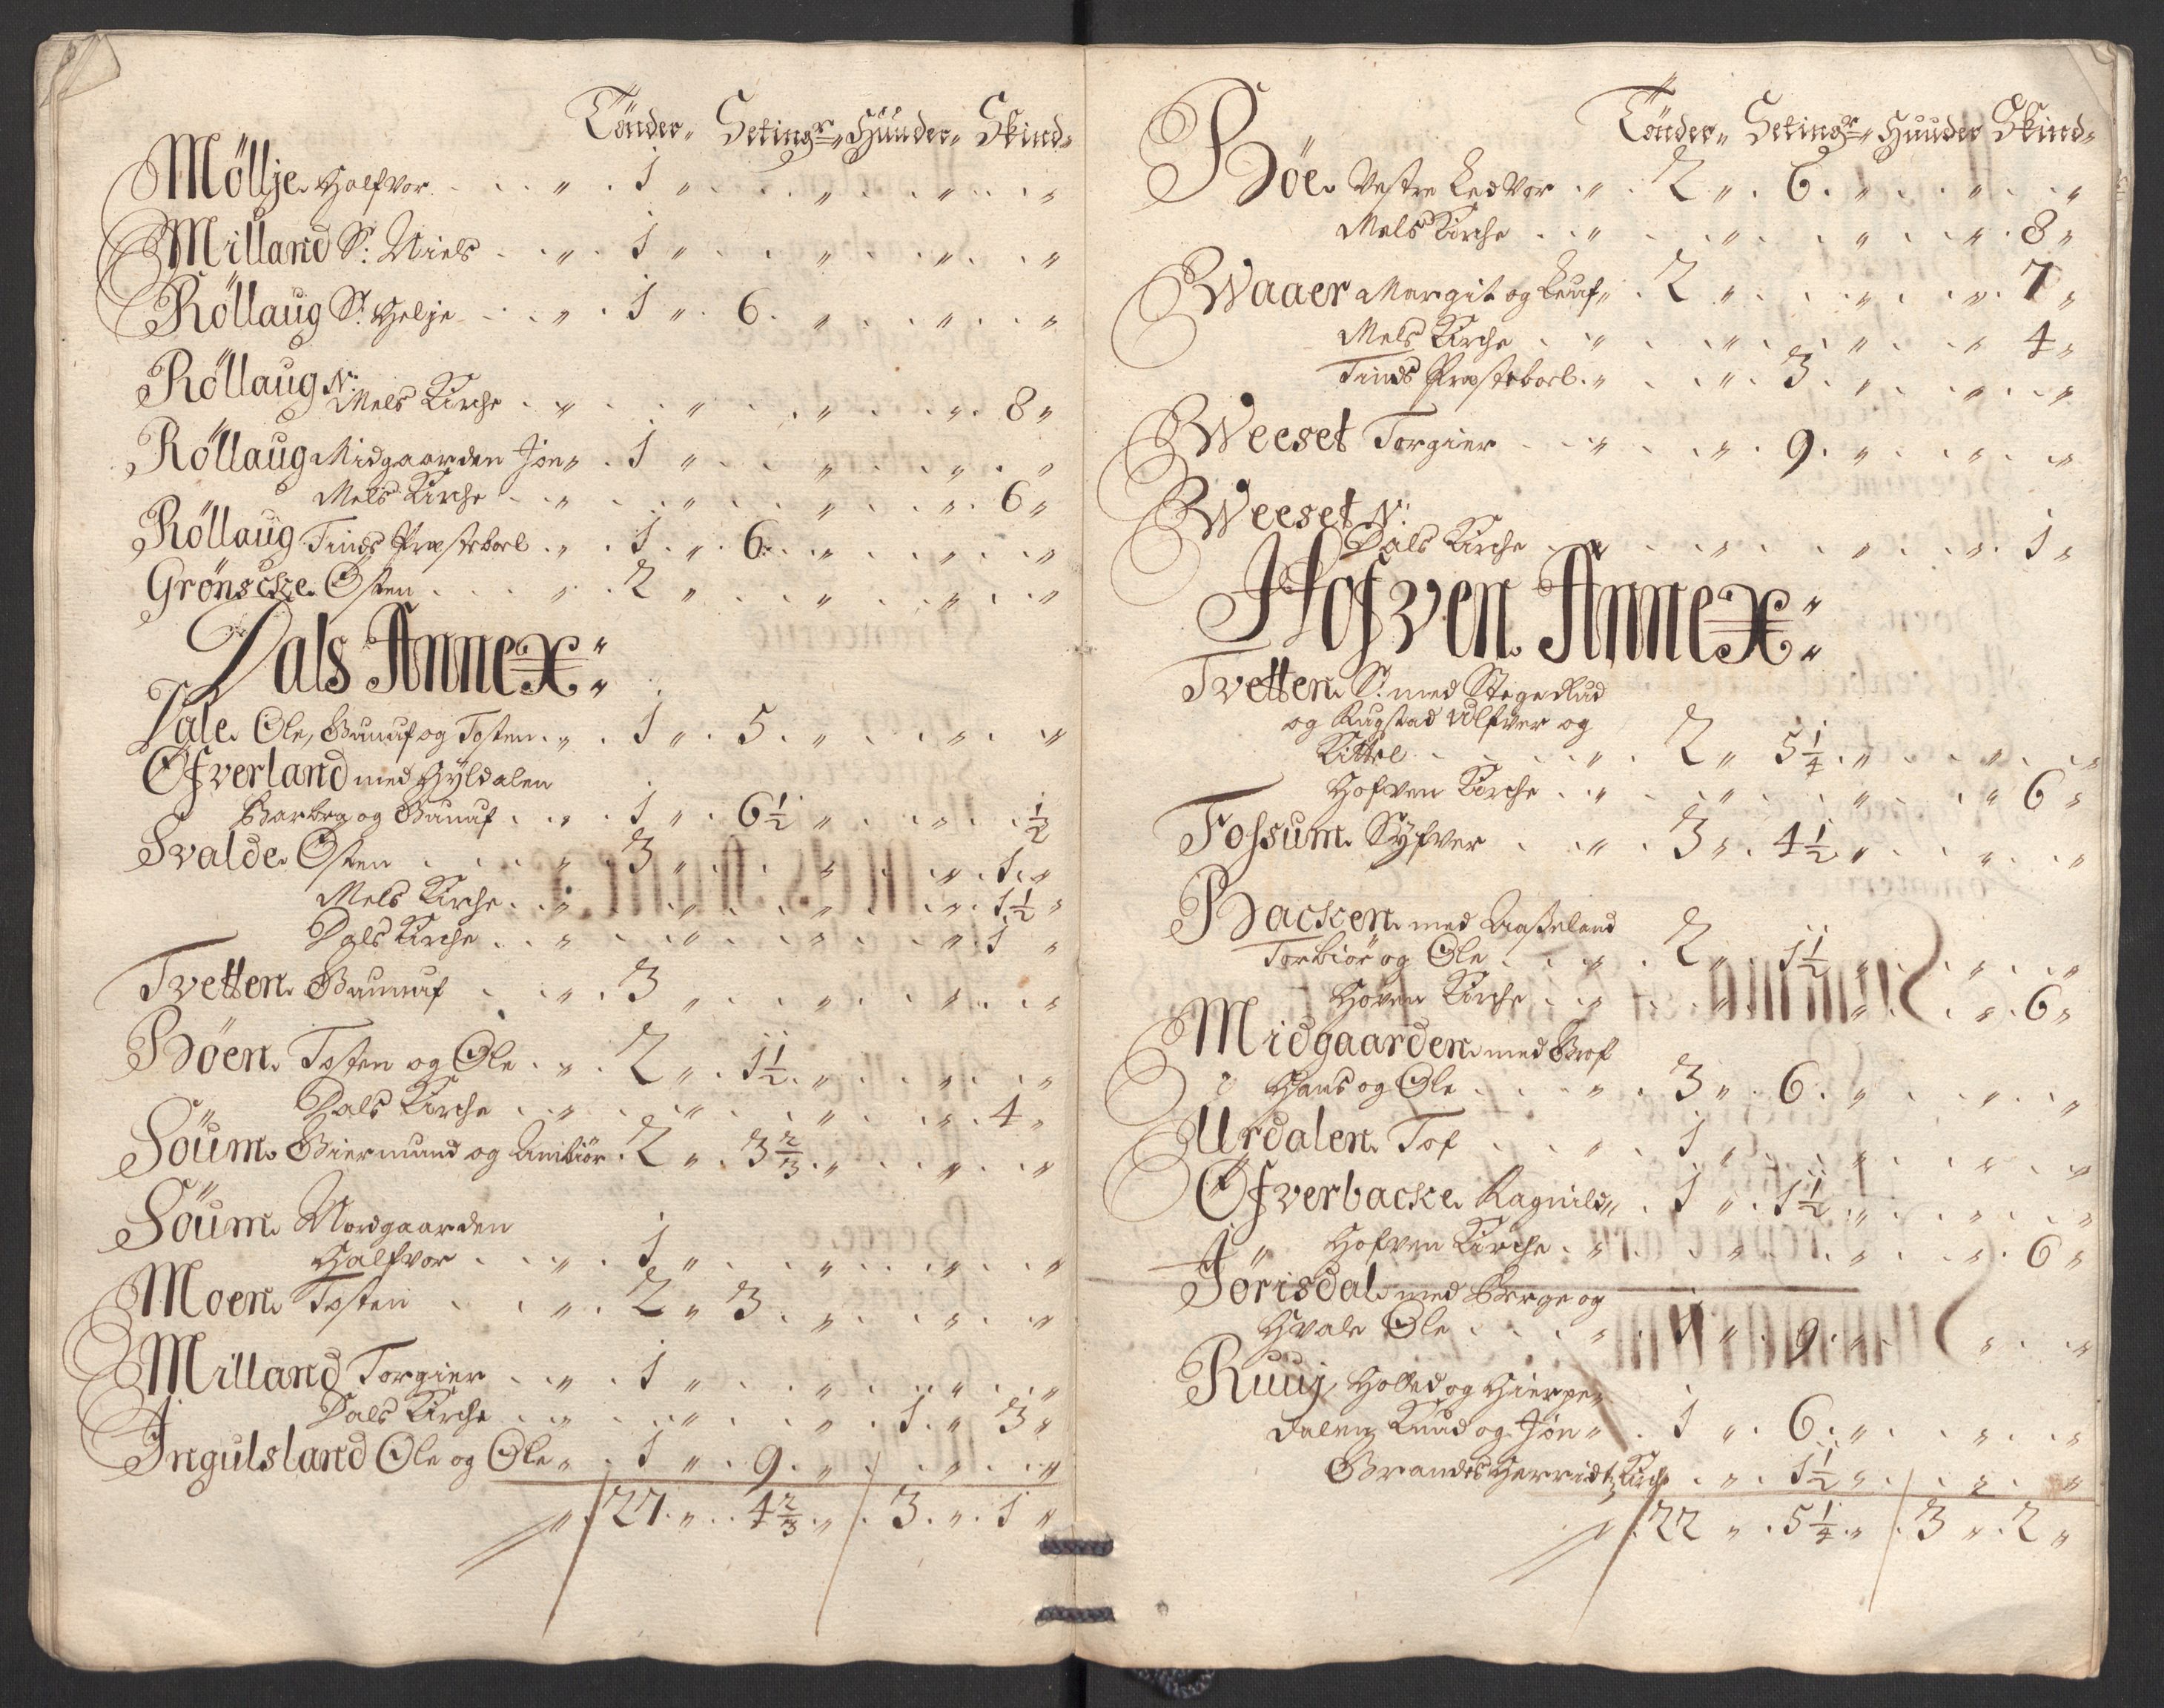 Tönder„ Setingr„ Hŭŭder„ Skind„
Möllje Halfvor . . . „ . 1 „ . . . „ . . . „ . . . „
Milland S: Niels . . . „ . 1 „ . . . „ . . . „ . . „
Röllaug S: Helje . . . „ . 1 „ . 6 . „ . . „ . . „
Röllaug N:
Mels Kirche . . „ . . . „ . . . „ . . „ . 8 „
Röllaug Midgaarden Jon „ . 1 „ . . . „ . . . „ . . „
Mels Kirche . . „ . . . „ . . . „ . . „ . 6 „
Röllaug Tinds Præsteboel . „ . 1 . „ . 6 . . „ . . . „ . . „
Grönscke Østen . . . „ . 2 „ . . . „ . . „ . . „
Dals Annex:
Dale Ole, Gunuf og Tosten . „ . 1 „ . 5 . „ . . . „ . . „
Øfverland med Gyldalen
Barbra og Gunuf . . „ . 1 „ . 6 1/2 „ . . „ . . 1/2
Svalde Østen . . . „ . 3 „ . . . „ . . „ . 1 . „
Mels Kirche . . „ . . . „ . . . „ . . „ . 1 1/2 „
Dals Kirche . . „ . . . „ . . . „ . . „ . 1 „
Tvetten Gunnuf . . „ . 3 „ . . . „ . . „ . . „
Böen Tosten og Ole . „ . 2 „ . 1 1/2 . „ . . „ . . „
Dals Kirche . . „ . . . „ . . . „ . . „ . 4 „
Söum Giermund og Anbiör . 2 „ . 3 2/3 . „ . . „ . . „
Söum Nordgaarden
Halfvor . . . „ . 1 „ . . . „ . . „ . . „
Moen Tosten . . „ . 2 „ 3 . „ . . „ . . „
Milland Torgier . . „ . 1 „ . . . „ . . „ . . „
Dals Kirche . . „ . . . „ . . . „ . 1 . „ 3 „
Ingulsland Ole og Ole „ . 1 „ . 9 . „ . . „ . . „
„ . 27 . „ . . 4 2/3 . „ . 3 . „ . 1 „
Tönder„ Setingr„ Huuder Skind„
Böe Vestre Ledvor . „ . 2 „ . 6 . „ . . „ . . „
Mels Kirche . . „ . . . „ . . . „ . . „ . 8 „
Waaer Margit og Leuf „ . 2 „ . . . „ . . „ . 7 „
Mels Kirche . . „ . . . „ . . „ . . „ 4 „
Tinds Præsteboel . „ . . . „ . 3 . „ . . „ . . „
Weeset Torgier . . . „ . . . „ . 9 . „ . . „ . . „
Weeset N:
Dals Kirche . . „ . . . „ . . . „ . . „ . 1 „
Hofven Annex:
Tvetten S: med Stegerud
og Rugstad Ulfver og
Kittel . . . . „ . 2 „ 5 1/4 . „ . . „ . . „
Hofven Kirche . . „ . . „ . . . „ . . „ 6 „
Fossum Syfver . . „ . 3 „ . 4 1/2 „ . . „ . . „
Backen med Aasseland
Torbiör og Ole . . „ . 2 „ . 1 1/2 „ . . „ . . „
Hoven Kirche . . „ . . . „ . . . „ . . „ . 6 „
Midgaarden med Brof
Hans og Ole . . . „ . 3 „ . 6 . „ . . „ . . „
Urdalen Tof . . . „ . 1 „ . . . „ . . „ . . „
Øfverbacke Ragnild „ . 1 „ . 1 1/2 „ . . „ . . „
Hofven Kirche . „ . . . „ . . . „ . . „ . 6 „
Jörisdal med Berge og
Hvale Ole . . . „ . 1 „ . 9 . „ . . „ . . „
Ruuj, Holted og Hierpe„
dalen Knud og Jön „ . 1 „ . 6 . „ . . „ . . „
Grandsherridtz Kirche . . „ . 1 1/2 „ . . „ . . „
„ . 22 „ . 5 1/4 . „ . 3 „ . 2 „